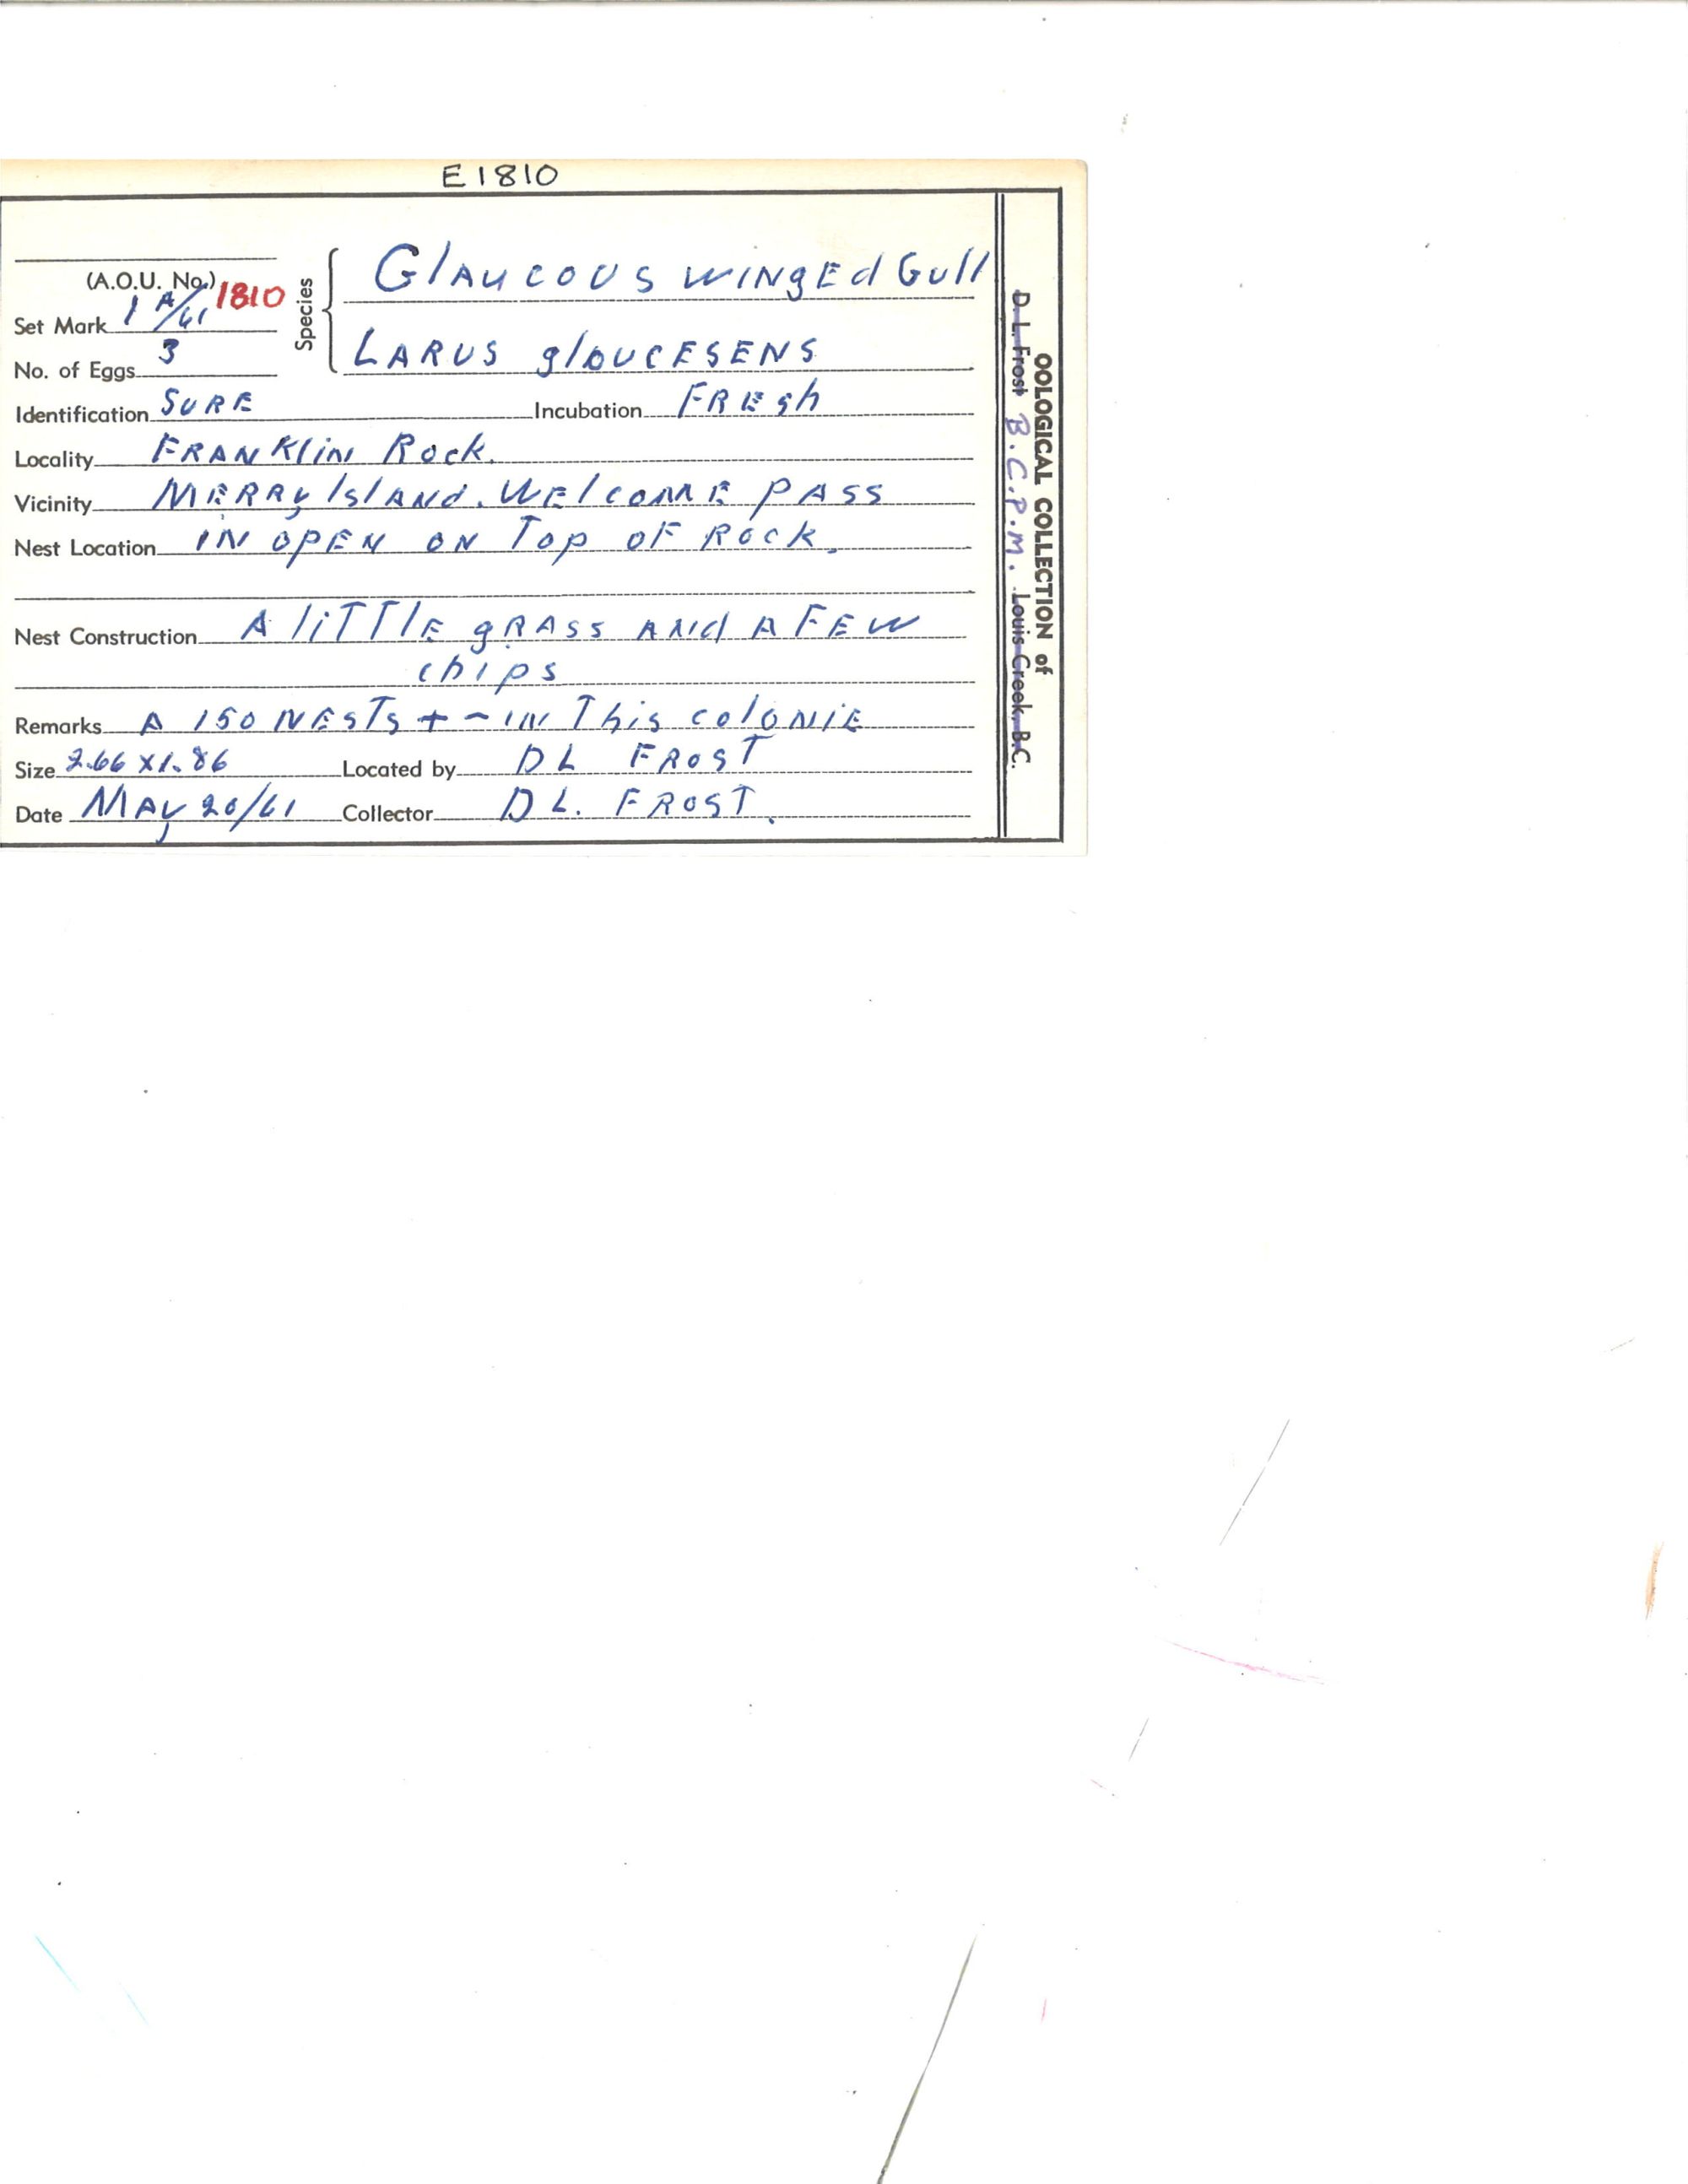 E1810
(A.O.U. No.) 1810
Set Mark 1 A/61
No. of Eggs 3
Species
Glaucous winged Gull
Larus gloucesens
Identification Sure Incubation Fresh
Locality Franklin Rock.
Vicinity Merry Island. Welcome Pass
Nest Location in open on Top of Rock.
Nest Construction A little grass and a few
chips
Remarks A 150 Nests + - in This colonie
Size 2.66 x 1.86 Located by DL Frost
Date May 20/61 Collector D L. Frost.
OOLOGICAL COLLECTION of
D. L. Frost B.C.P.M. Louis Creek, B.C.